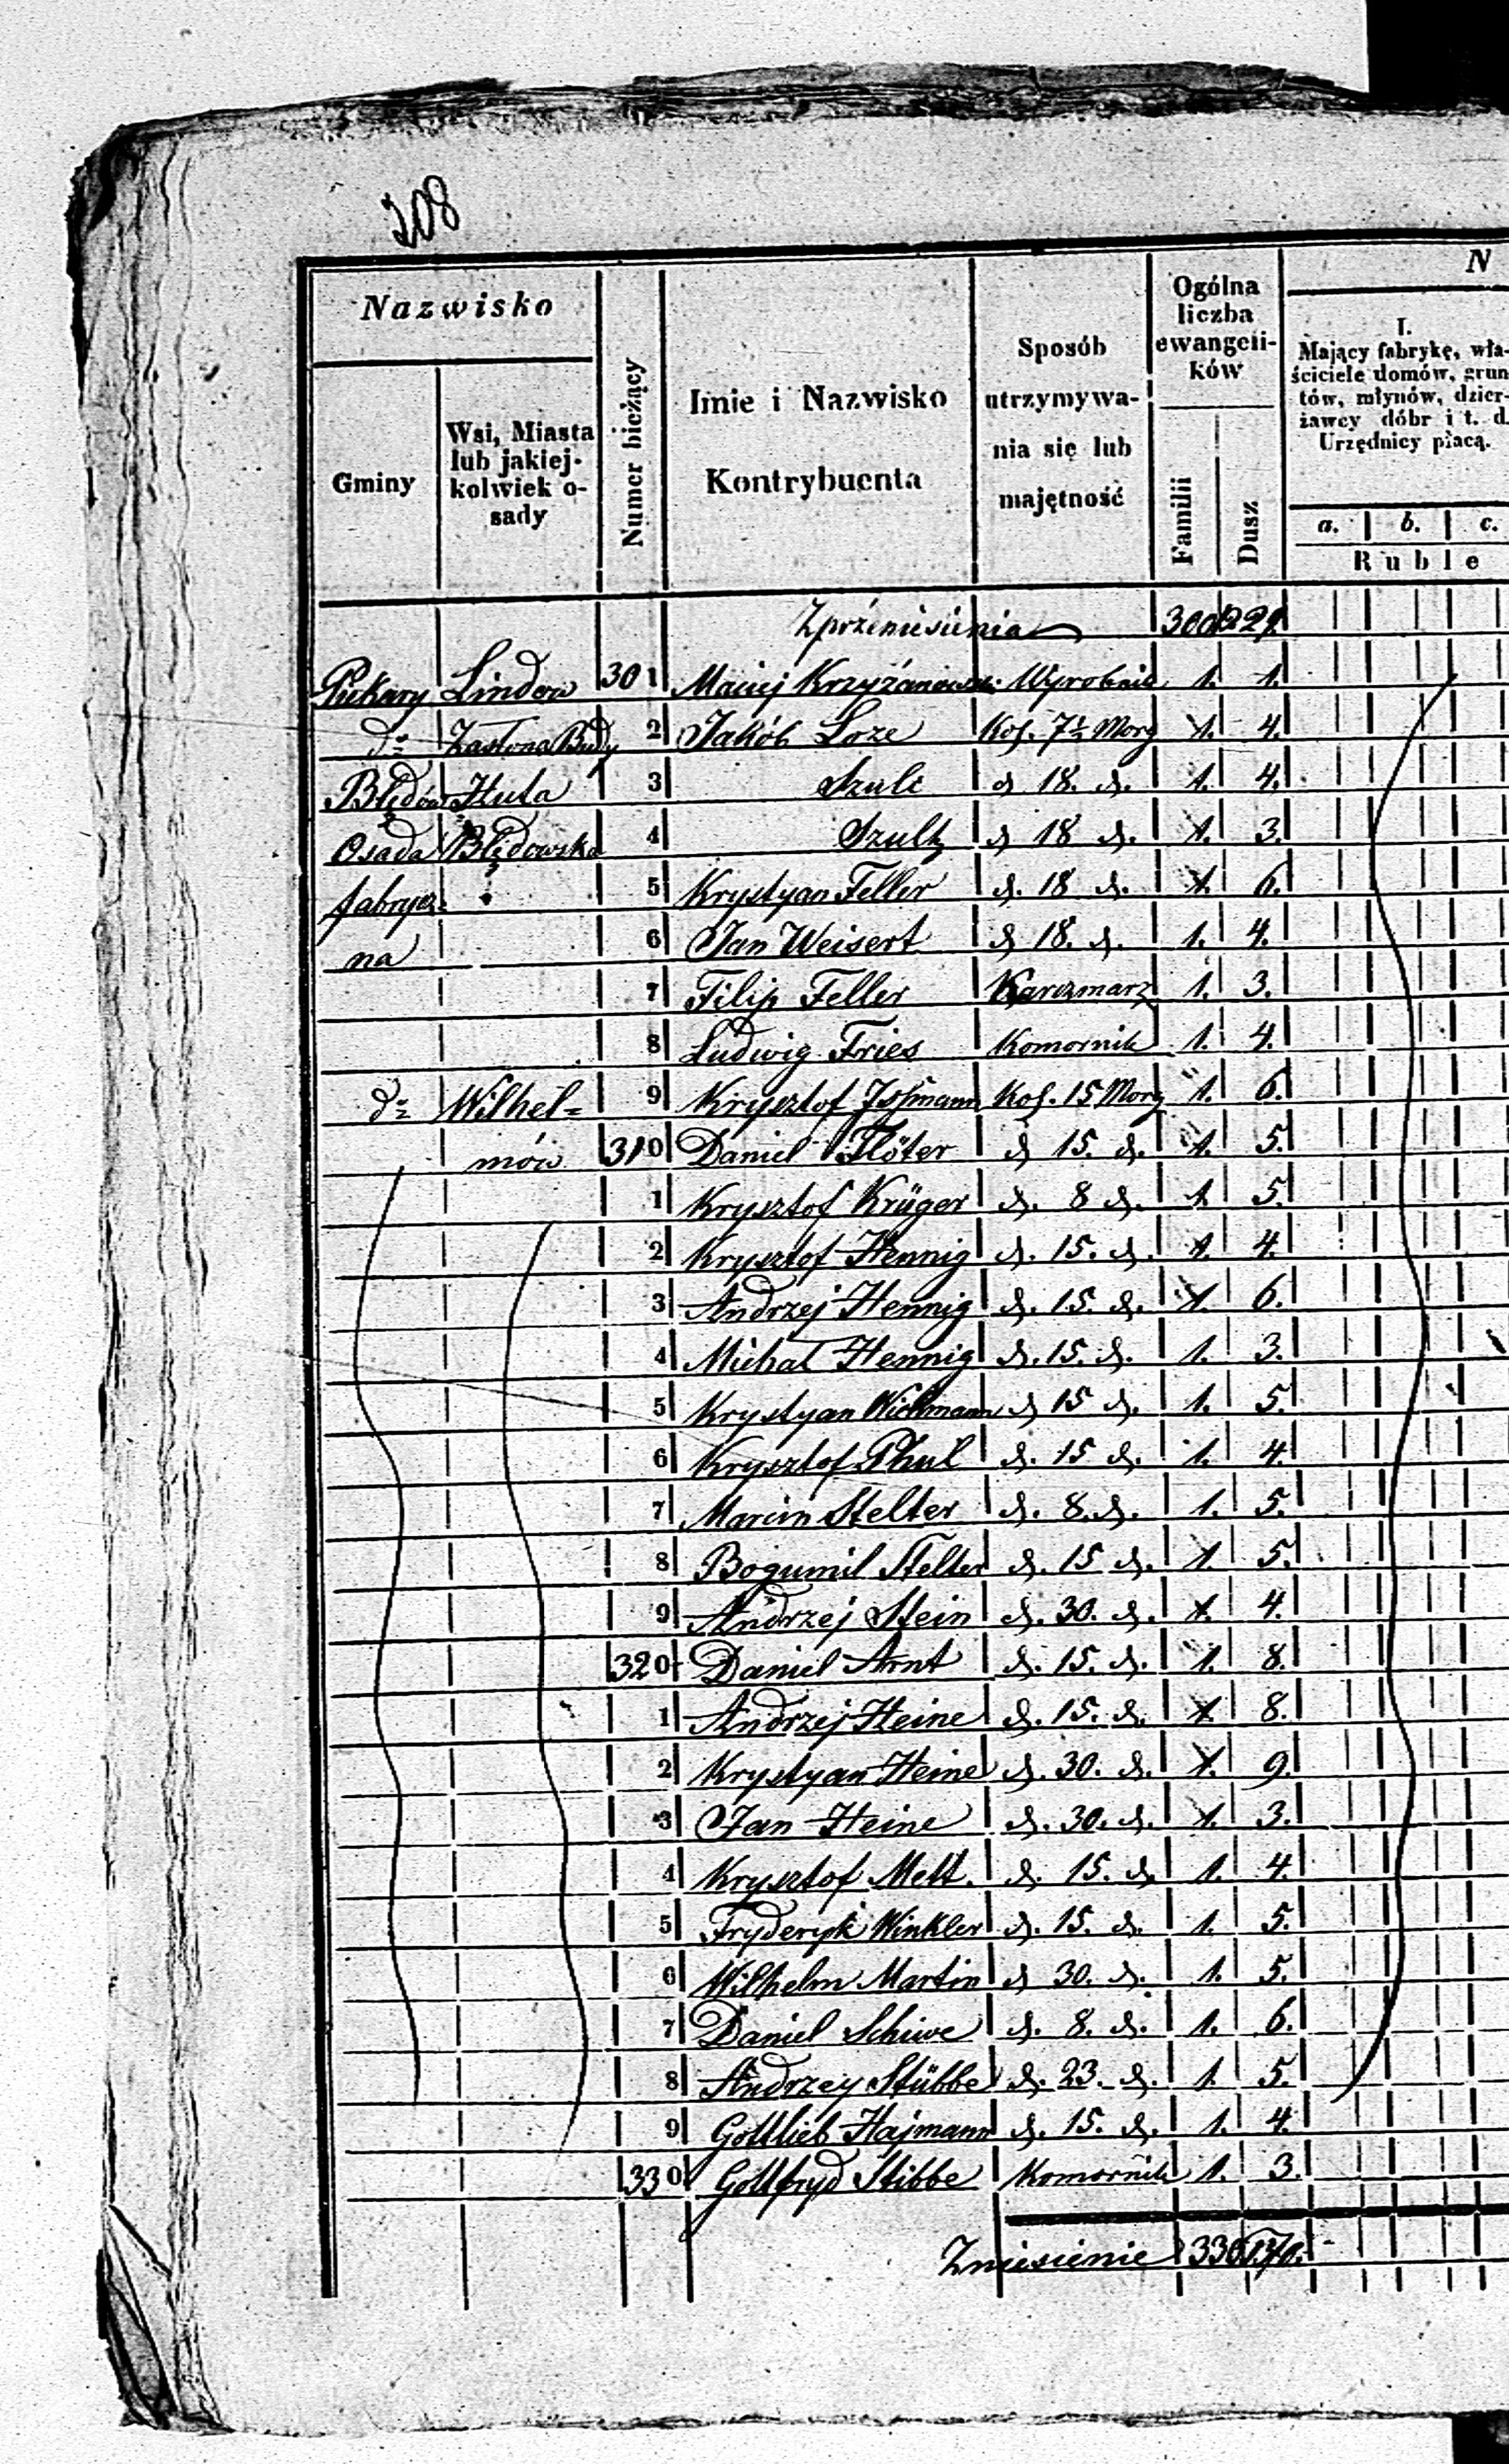 208
Nazwisko
Gminy
Wsi, Miasta lub jakiej-kolwiek o-sady
Numer bieżący
Imie i Nazwisko Kontrybuenta
Sposób utrzymywa-nia się lub majętność
Ogólna liczba ewangeli-ków
Familii
Dusz
N
I.
Mający fabrykę, wła-
ściciele domów, grun
tów, młynów, dzier-
żawcy dóbr i t. d.
Urzędnicy płacą.
a. b. c.
Ruble
Z przeniesienia 300
Piekary Lindow 301 Maciej Krzyżanowski Wyrobnik 1. 1.
do Zasłona Budy 2 Jakób Loze Kol. 7½ Morg 1. 4.
Błędów Huta 3 Szulc d 18. d. 1. 4.
Osada Błędowska 4 Szultz d 18 d. 1. 3.
fabrycz- 5 Krystyan Feller d. 18 d. 1. 6.
na 6 Jan Weisert d 18. d. 1. 4.
7 Filip Feller Karczmarz 1. 3.
8 Ludwig Fries Komornik 1. 4.
do Wilhel= 9 Krysztof Kol. 15 Morg 1. 6.
mów 310 Daniel Flöter d 15. d. 1. 5.
1 Krysztof Krüger d. 8 d. 1. 5.
2 Krysztof Hennig d. 15. d. 1. 4.
3 Andrzej Hennig d. 15. d. 1. 6.
4 Michał Hennig d. 15. d. 1. 3.
5 Krystyan Wichmann d 15 d. 1. 5.
6 Krysztof Phul d. 15 d. 1. 4.
7 Marcin Stelter d. 8. d. 1. 5.
8 Bogumil Stelter d. 15 d. 1. 5.
9 Andrzej Stein d. 30. d. 1. 4.
320 Daniel Arnt d. 15. d. 1. 8.
1 Andrzej Heine d. 15. d. 1. 8.
2 Krystyan Heine d. 30. d. 1. 9.
3 Jan Heine d. 30. d. 1. 3.
4 Krysztof Mett. d. 15. d. 1. 4.
5 Fryderyk Winkler d. 15. d. 1. 5.
6 Wilhelm Martin d 30. d. 1. 5.
7 Daniel Schiwe d. 8. d. 1. 6.
8 Andrzey Stübbe d. 23. d. 1. 5.
9 Gottlieb Hajmann d. 15. d. 1. 4.
330 Gottfryd Stibbe Komornik 1. 3.
Zniesienie 330